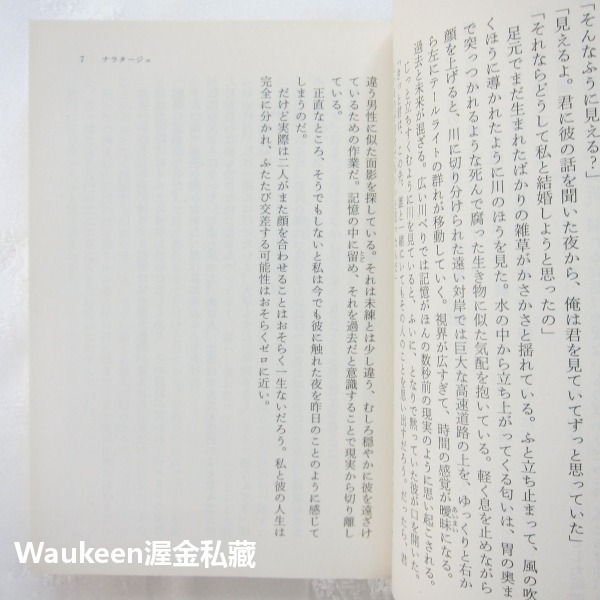 「そんなふうに見える？」
「見えるよ。君に彼の話を聞いた夜から、俺は君を見ていてずっと思っていた」
「それならどうして私と結婚しようと思ったの」
足元でまだ生まれたばかりの雑草がかさかさと揺れている。ふと立ち止まって、風の吹
くほうに導かれたように川のほうを見た。水の中から立ち上がってくる匂いは、胃の奥ま
で突っつかれるような死んで腐った生き物に似た気配を抱いている。軽く息を止めながら
顔を上げると、川に切り分けられた遠い対岸では巨大な高速道路の上を、ゆっくりと右か
ら左にテールライトの群れが移動していく。視界が広すぎて、時間の感覚が曖昧になる。
過去と未来が混ざる。広い川べりでは記憶がほんの数秒前の現実のように思い起こされる。
じっと立ちすくむように川を見ていると、ふいに、となりで黙っていた彼が口を開いた。
7 ナラタージュ
違う男性に似た面影を探している。それは未練とは少し違う、むしろ穏やかに彼を遠ざけ
ているための作業だ。記憶の中に留め、それを過去だと意識することで現実から切り離し
ている。
正直なところ、そうでもしないと私は今でも彼に触れた夜を昨日のことのように感じて
しまうのだ。
だけど実際は二人がまた顔を合わせることはおそらく一生ないだろう。私と彼の人生は
完全に分かれ、ふたたび交差する可能性はおそらくゼロに近い。
Waukeen渥金私藏